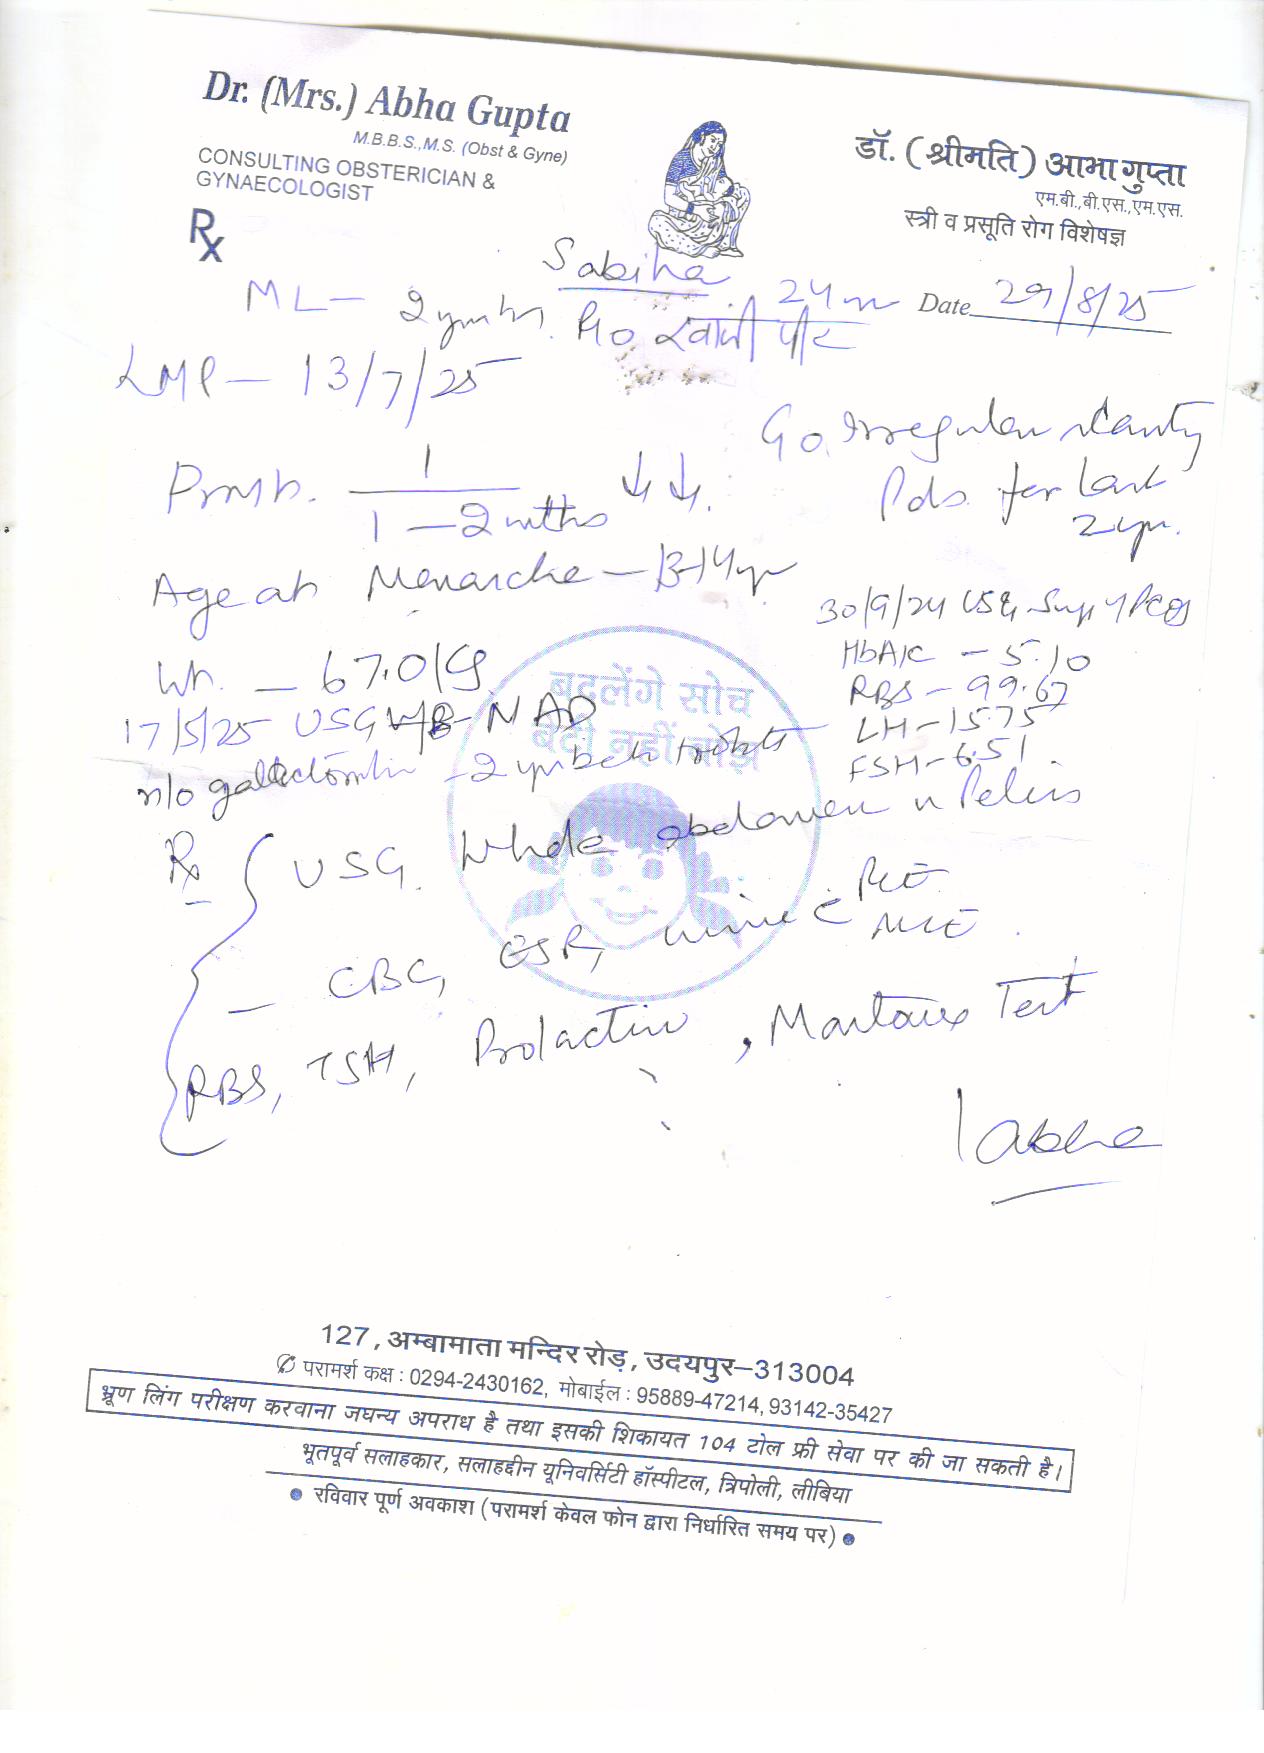 Dr. (Mrs.) Abha Gupta
M.B.B.S.,M.S. (Obst & Gyne)
CONSULTING OBSTERICIAN &
GYNAECOLOGIST
डॉ. (श्रीमति) आभा गुप्ता
एम.बी.,बी.एस.,एम.एस.
स्त्री व प्रसूति रोग विशेषज्ञ
Rx
Sabiha 24 Date 29/8/25
ML - 2 R/o
LMP - 13/7/25
C/o Irregular scanty
Pds. for last
2 yr.
1
1-2 mths ↓ ↓.
Age at Menarche - 13-14 yr
30/9/24 USG PCOS
Wt. - 67.0 kg
HbA1C - 5.10
RBS - 99.67
LH - 15.75
FSH - 6.51
17/5/25 USG W/B - NAD
बदलेंगे सोच
बेटी नहीं बोझ
h/o - 2 yr back
Rx USG. Whole abdomen Pelvis
- CBC, ESR, urine c̄ RE
ME
RBS, TSH, Prolactin, Montoux Test
Abha
127, अम्बामाता मन्दिर रोड़, उदयपुर–313004
✆ परामर्श कक्ष : 0294-2430162, मोबाईल : 95889-47214, 93142-35427
भ्रूण लिंग परीक्षण करवाना जघन्य अपराध है तथा इसकी शिकायत 104 टोल फ्री सेवा पर की जा सकती है।
भूतपूर्व सलाहकार, सलाहद्दीन यूनिवर्सिटी हॉस्पीटल, त्रिपोली, लीबिया
● रविवार पूर्ण अवकाश (परामर्श केवल फोन द्वारा निर्धारित समय पर) ●